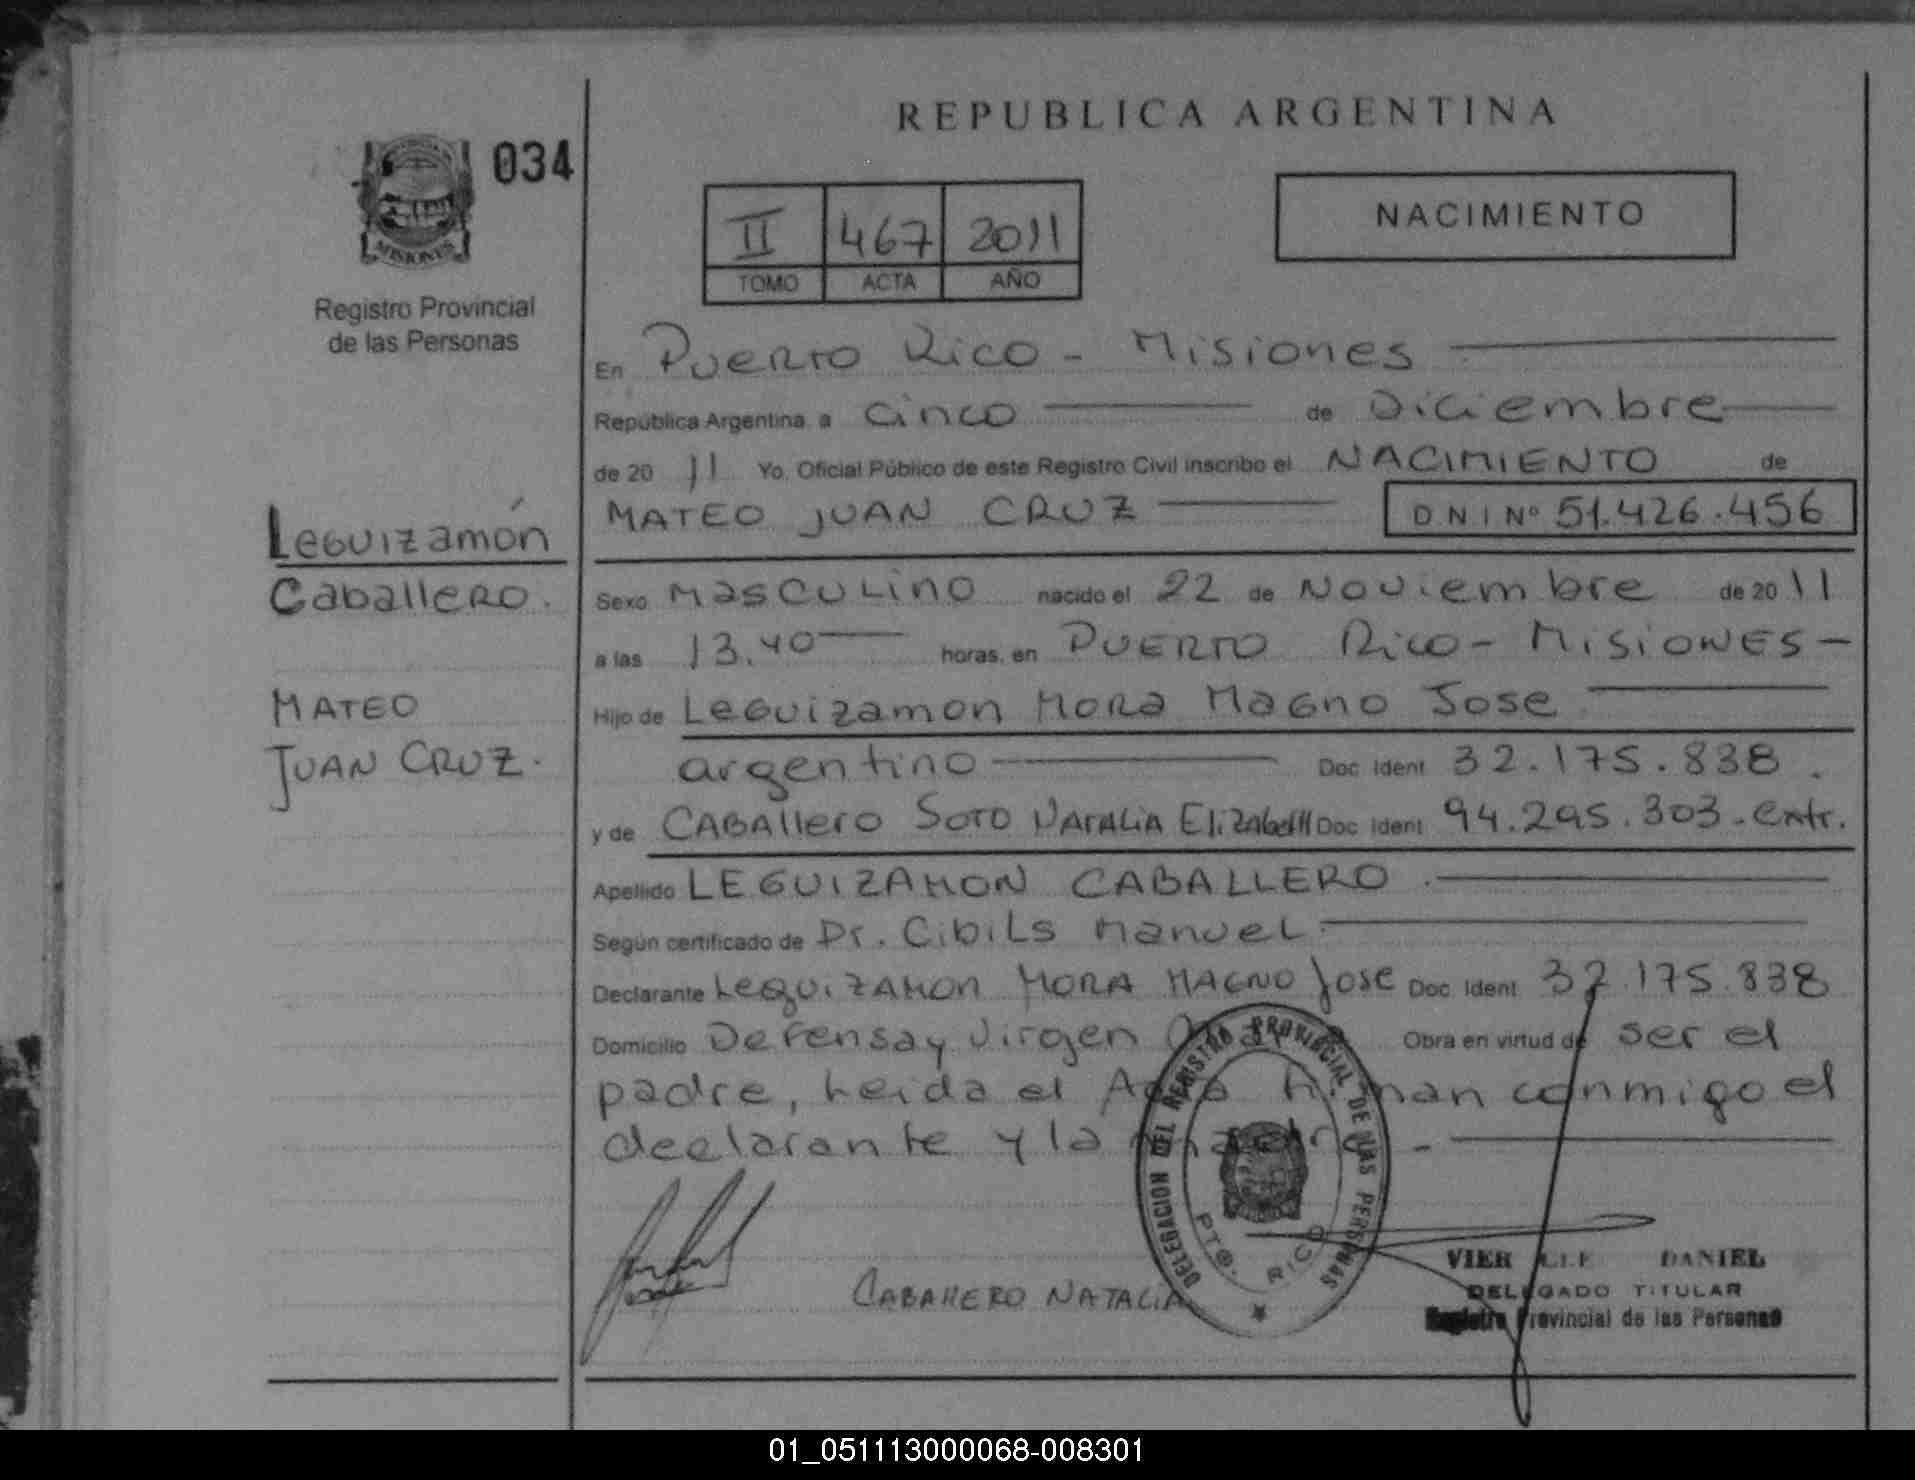 REPUBLICA ARGENTINA
034
MISIONES
Registro Provincial
de las Personas
II 467 2011
TOMO ACTA AÑO
NACIMIENTO
En Puerto Rico - Misiones
República Argentina, a cinco de Diciembre
de 2011 Yo, Oficial Público de este Registro Civil inscribo el NACIMIENTO de
MATEO JUAN CRUZ DNI Nº 51.426.456
Leguizamón
Caballero.
MATEO
JUAN CRUZ.
Sexo Masculino nacido el 22 de Noviembre de 2011
a las 13.40 horas, en Puerto Rico - Misiones -
Hijo de Leguizamon Mora Magno Jose
argentino Doc Ident 32.175.838.
y de Caballero Soto Natalia Elizabeth Doc Ident 94.295.303.-extr.
Apellido LEGUIZAMON CABALLERO.
Según certificado de Dr. Cibils Manuel.
Declarante Leguizamon Mora Magno Jose Doc Ident 32.175.838
Domicilio Defensa y Virgen Obra en virtud de ser el
padre, leida el Acta firman conmigo el
declarante y la madre.-
CABALLERO NATALIA
DELEGACION DEL REGISTRO PROVINCIAL DE LAS PERSONAS
PTO. RICO
DANIEL
DELEGADO TITULAR
Registro Provincial de las Personas
01_051113000068-008301